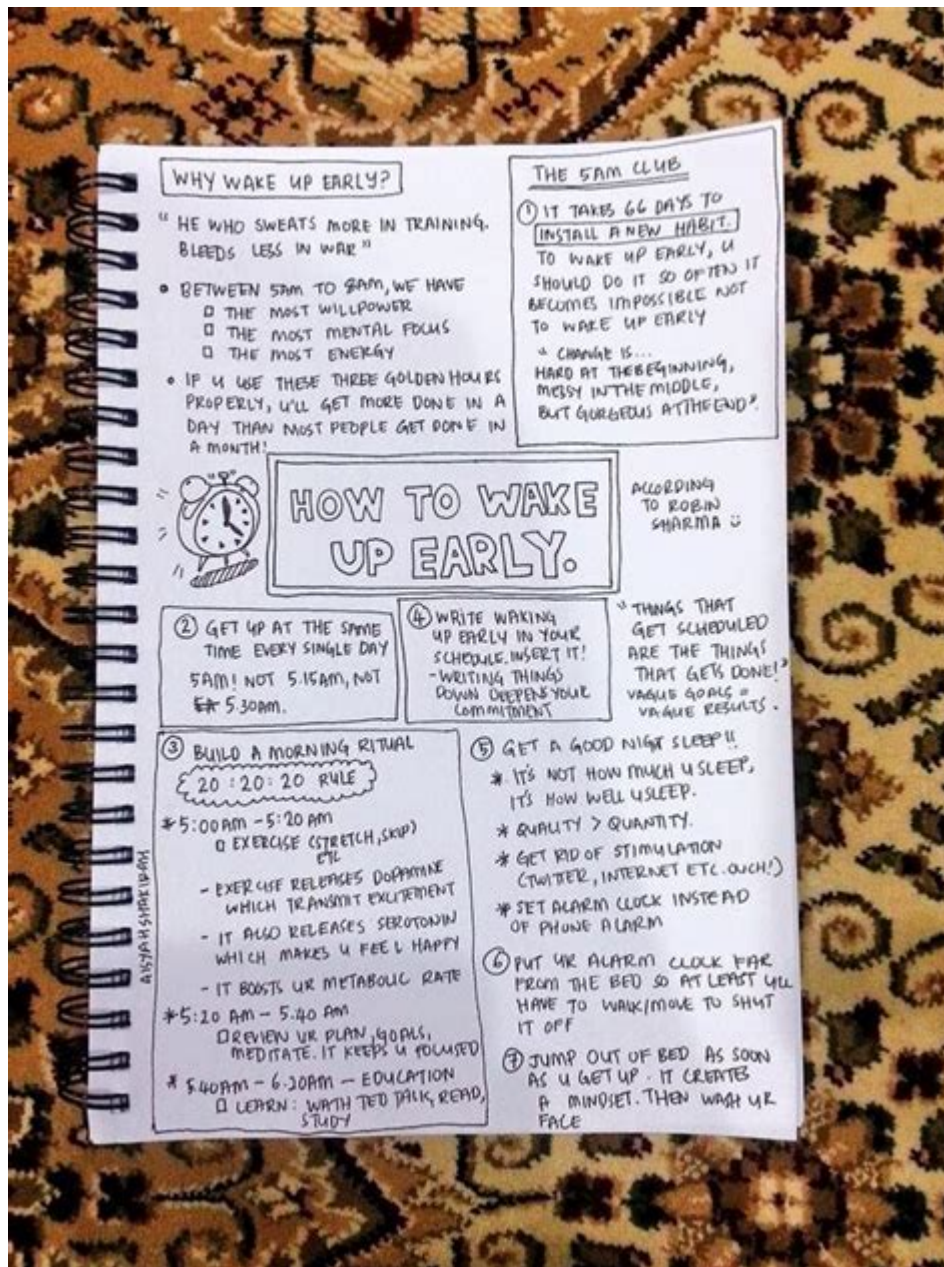 WHY WAKE UP EARLY?
"HE WHO SWEATS MORE IN TRAINING.
BLEEDS LESS IN WAR"
• BETWEEN 5AM TO 8AM, WE HAVE
THE MOST WILLPOWER
THE MOST MENTAL FOCUS
THE MOST ENERGY
• IF U USE THESE THREE GOLDEN HOURS
PROPERLY, U'LL GET MORE DONE IN A
DAY THAN MOST PEOPLE GET DONE IN
A MONTH!
THE 5AM CLUB
① IT TAKES 66 DAYS TO
INSTALL A NEW HABIT.
TO WAKE UP EARLY, U
SHOULD DO IT SO OFTEN IT
BECOMES IMPOSSIBLE NOT
TO WAKE UP EARLY
"CHANGE IS...
HARD AT THE BEGINNING,
MESSY IN THE MIDDLE,
BUT GORGEOUS AT THE END".
HOW TO WAKE
UP EARLY.
ACCORDING
TO ROBIN
SHARMA
② GET UP AT THE SAME
TIME EVERY SINGLE DAY
5AM! NOT 5.15AM, NOT
5.30AM.
④ WRITE WAKING
UP EARLY IN YOUR
SCHEDULE. INSERT IT!
- WRITING THINGS
DOWN DEEPENS YOUR
COMMITMENT
"THINGS THAT
GET SCHEDULED
ARE THE THINGS
THAT GETS DONE!"
VAGUE GOALS =
VAGUE RESULTS.
③ BUILD A MORNING RITUAL
20:20:20 RULE
*5:00AM - 5:20AM
EXERCISE (STRETCH, SKIP)
ETC
- EXERCISE RELEASES DOPAMINE
WHICH TRANSMIT EXCITEMENT
- IT ALSO RELEASES SEROTONIN
WHICH MAKES U FEEL HAPPY
- IT BOOSTS UR METABOLIC RATE
*5:20 AM - 5.40 AM
REVIEW UR PLAN, GOALS,
MEDITATE. IT KEEPS U FOCUSED
* 5.40AM - 6.20AM - EDUCATION
LEARN: WATH TED TALK, READ,
STUDY
AISYAH SHAKIRAH
⑤ GET A GOOD NIGT SLEEP!!
* IT'S NOT HOW MUCH U SLEEP,
IT'S HOW WELL U SLEEP.
* QUALITY > QUANTITY.
* GET RID OF STIMULATION
(TWITTER, INTERNET ETC. OUCH!)
* SET ALARM CLOCK INSTEAD
OF PHONE ALARM
⑥ PUT UR ALARM CLOCK FAR
FROM THE BED SO AT LEAST U'LL
HAVE TO WALK/MOVE TO SHUT
IT OFF
⑦ JUMP OUT OF BED AS SOON
AS U GET UP. IT CREATES
A MINDSET. THEN WASH UR
FACE